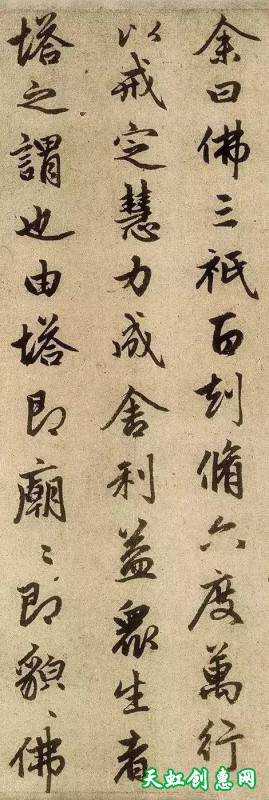 余曰佛三祇百劫脩六度萬行
以戒定慧力成舍利益眾生者
塔之謂也由塔即廟〻即貌〻佛
天虹创惠网